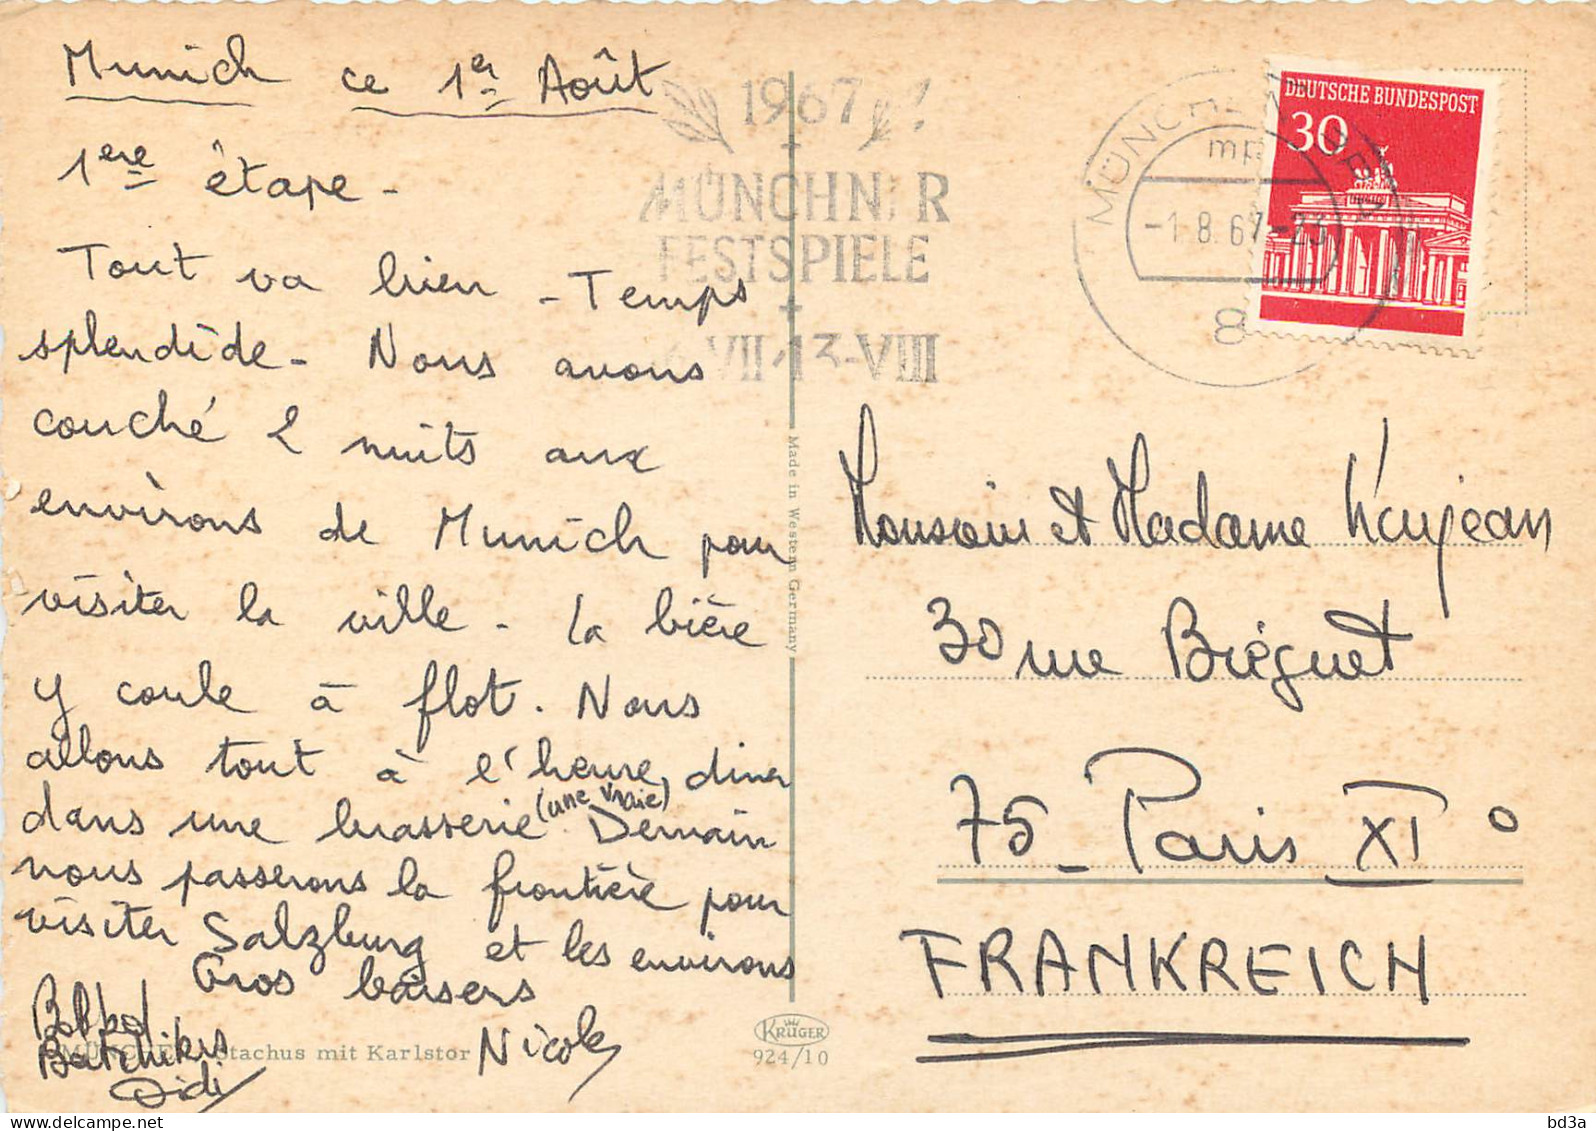 Munich ce 1er Août
1ère étape -
Tout va bien - Temps
splendide - Nous avons
couché 2 nuits aux
environs de Munich pour
visiter la ville - la bière
y coule à flot. Nous
allons tout à l'heure diner
dans une brasserie (une vraie). Demain
nous passerons la frontière pour
visiter Salzburg et les environs
Gros baisers
Nicole
Didi
MÜNCHEN Stachus mit Karlstor
Made in Western Germany
KRÜGER
924/10
1967
MÜNCHNER
FESTSPIELE
VII-13-VIII
MÜNCHEN
-1.8.67-23
8
DEUTSCHE BUNDESPOST
30
Monsieur et Madame
30 rue Bréguet
75 - Paris XI°
FRANKREICH
bd3a